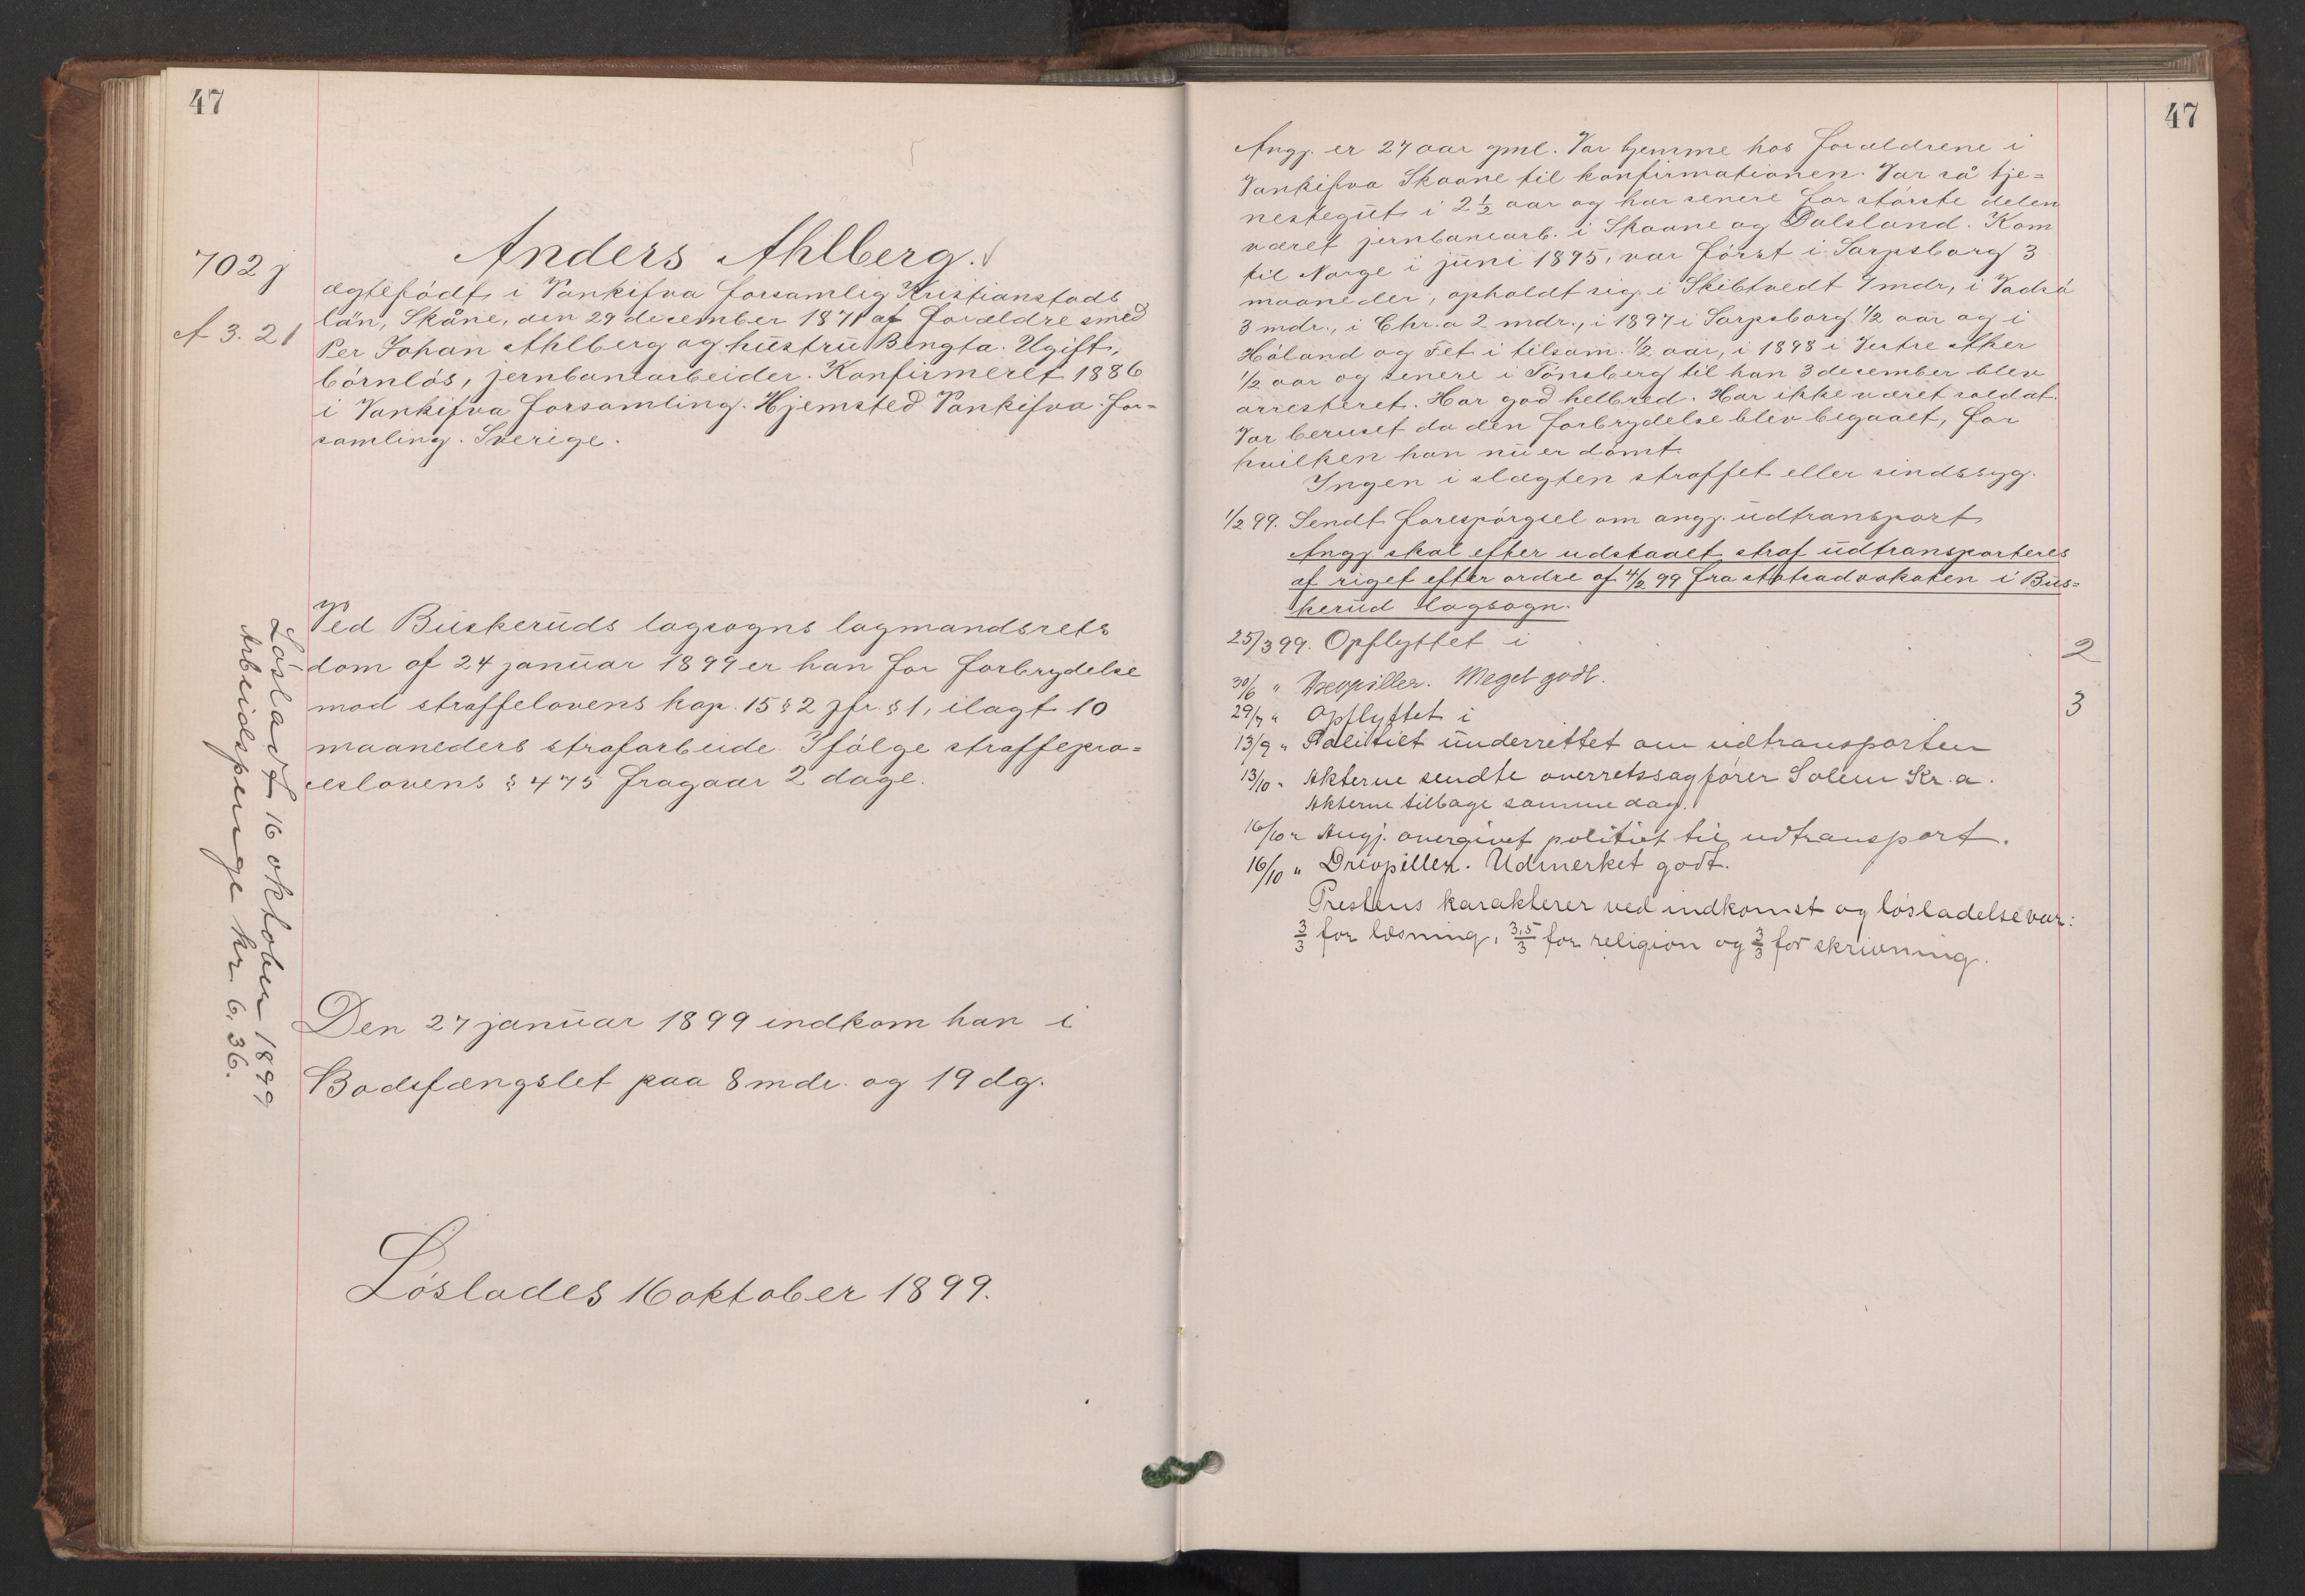 47
702 j
A 3. 21
Anders Ahlberg.
ægtefødt i Vankifva forsamlig Kristianstads
län, Skåne, den 29 december 1871 af forældre smed
Per Johan Ahlberg og hustru Bengta. Ugift,
börnlös, jernbanearbeider. Konfirmeret 1886
i Vankifva forsamling. Hjemsted Vankifva for-
samling. Sverige.
Ved Buskeruds lagsogns lagmandsrets
dom af 24 januar 1899 er han for forbrydelse
mod straffelovens kap. 15 § 2 jfr. § 1, ilagt 10
maaneders strafarbeide. Ifölge straffepro-
ceslovens § 475 fragaar 2 dage.
Löslavt 16 oktober 1899
Arbeidspenge kr. 6,36.
Den 27 januar 1899 indkom han i
Bodsfængslet paa 8 mdr. og 19 dg.
Löslades 16 oktober 1899.
47
Angj. er 27 aar gml. Var hjemme hos forældrene i
Vankifva Skaane til konfirmationen. Var så tje=
nestegut i 2 1/2 aar og har senere for störste delen
været jernbanearb. i Skaane og Dalsland. Kom
til Norge i juni 1895, var först i Sarpsborg 3
maaneder, opholdt sig i Skibtvedt 7 mdr, i Vadsö
3 mdr., i Chr.a 2 mdr., i 1897 i Sarpsborg 1/2 aar og i
Höland og Fet i tilsam. 1/2 aar, i 1898 i Vestre Aker
1/2 aar og senere i Tönsberg til han 3 december blev
arresteret. Har god helbred. Har ikke været soldat.
Var beruset da den forbrydelse blev begaaet, for
hvilken han nu er dömt.
Ingen i slægten straffet eller sindssyg.
1/2 99. Sendt forespörgsel om angj. udtransport
Angj. skal efter udstaaet straf udtransporteres
af riget efter ordre af 4/2 99 fra statsadvokaten i Bus=
kerud lagsogn.
25/3 99. Opflyttet i 2
30/6 " Drevpiller. Meget godt.
29/7 " Opflyttet i 3
13/9 " Politiet underrettet om udtransporten
13/10 " Akterne sendte overretssagförer Solem Kr.a.
Akterne tilbage samme dag.
16/10 " Angj. overgivet politiet til udtransport.
16/10 " Drevpiller. Udmerket godt.
Prestens karakterer ved indkomst og lösladelse var:
3/3 for læsning, 3,5/3 for religion og 3/3 for skrivning.